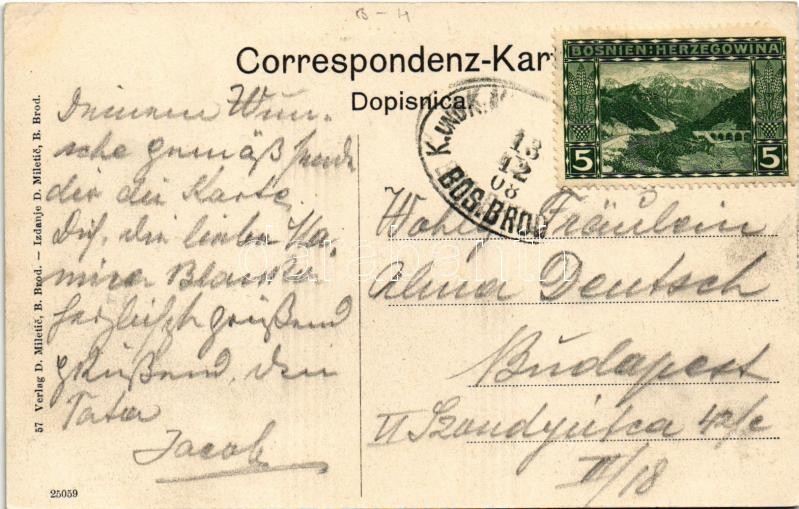 B-H
Correspondenz-Kar
Dopisnica
BOSNIEN:HERZEGOWINA
5 5
K. UND K. M
13
12
08
BOS. BROD
57 Verlag D. Miletič, B. Brod. — Izdanje D. Miletič, B. Brod.
Deinem Wun-
sche gemäß sende
dir die Karte
Dich, die liebe
Blanka
herzlichst grüßend
küßend, dein
Tata
Jacob
25059
Wohlg Fräulein
Alma Deutsch
Budapest
Szondyutca 42/c
III/18
darabanth